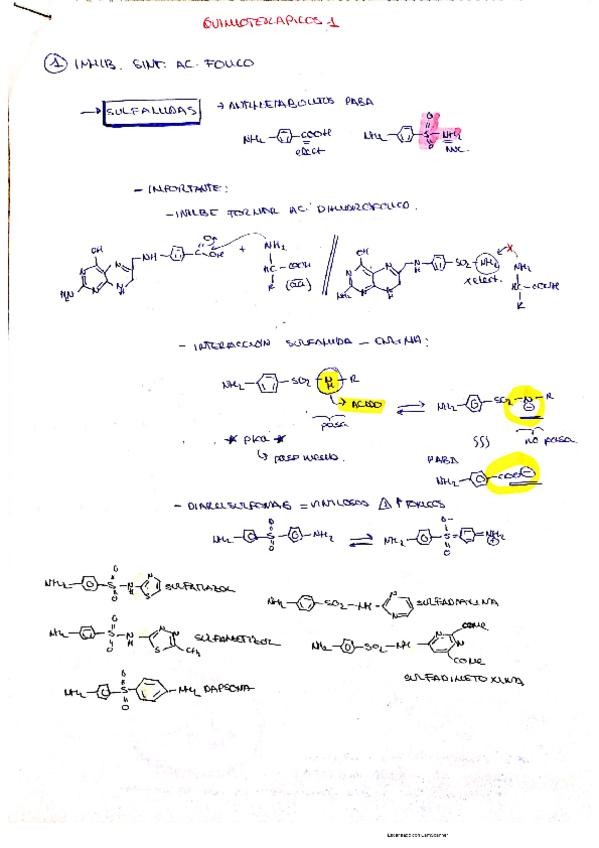 QUIMIOTERAPICOS 1
① INHIB. SINT. AC. FOLICO
→ SULFAMIDAS → ANTIMETABOLITOS PABA
NH₂ COOH NH₂ S NH₂
O O
elect Nuc.
- IMPORTANTE:
- INHIBE FORMAR AC. DIHIDROFOLICO.
OH NH C OH + NH₂ OH NH SO₂ NH₂ X NH₂
N N N N H NH₂ HC - COOH R (aa) N N N N H NH₂ HC - COOH R
- INTERACCIÓN SULFAMIDA - ENZIMA:
NH₂ SO₂ N H R
→ ACIDO ⇌ NH₂ SO₂ N R
pasa no pasa
★ pka ★
PABA
NH₂ COO⊖
- DIARILSULFONAS = VINILOGOS ⚠ ↑ TOXICOS
NH₂ S NH₂ ⇌ NH₂ S NH₂
NH₂ S NH N S SULFATIAZOL
NH₂ SO₂ NH N N SULFADIAZINA
NH₂ S N H N N S CH₃ SULFAMETIZOL
NH₂ SO₂ NH N N OOMe OOMe
SULFADIMETOXINA
NH₂ S NH₂ DAPSONA
Escaneado con CamScanner